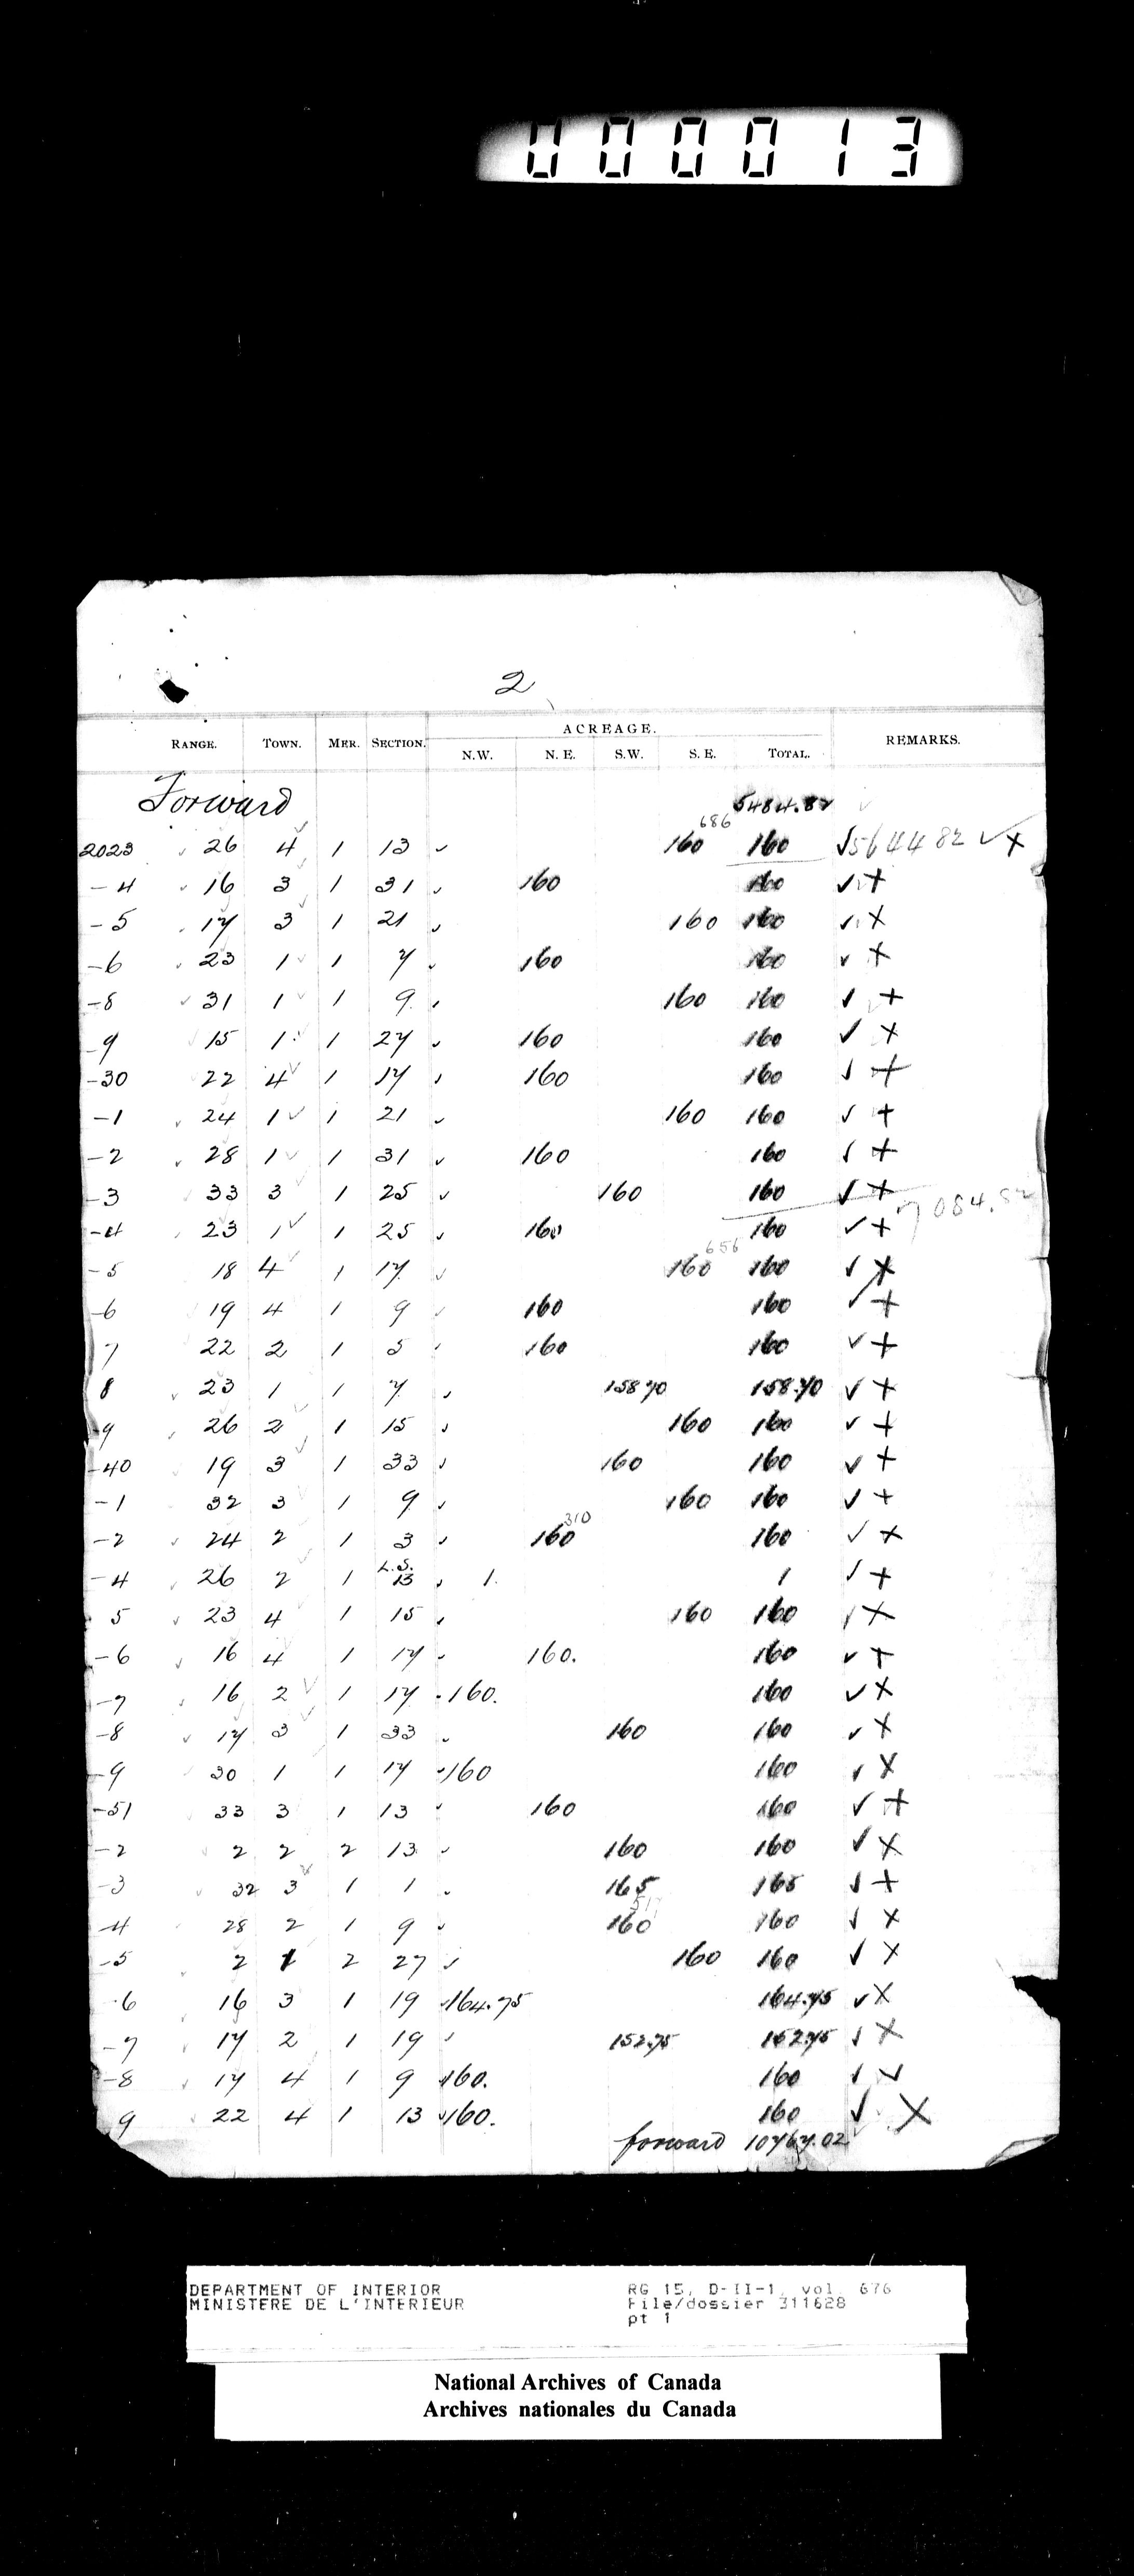 000013
2
RANGE. TOWN. MER. SECTION. ACREAGE. REMARKS.
N.W. N.E. S.W. S.E. TOTAL.
Forward 5484.82
686
2023 26 4 1 13 160 160 5644 82
-4 16 3 1 31 160 160
-5 17 3 1 21 160 160
-6 23 1 1 7 160 160
-8 31 1 1 9 160 160
9 15 1 1 27 160 160
-30 22 4 1 17 160 160
-1 24 1 1 21 160 160
-2 28 1 1 31 160 160
-3 33 3 1 25 160 160
7084.82
-4 23 1 1 25 160 160
656
-5 18 4 1 17 160 160
-6 19 4 1 9 160 160
7 22 2 1 5 160 160
8 23 1 1 7 158 70 158.70
-9 26 2 1 15 160 160
-40 19 3 1 33 160 160
-1 32 3 1 9 160 160
310
-2 24 2 1 3 160 160
-4 26 2 1 L.S. 13 1. 1
5 23 4 1 15 160 160
-6 16 4 1 17 160. 160
-7 16 2 1 17 160. 160
-8 17 3 1 33 160 160
-9 30 1 1 17 160 160
-51 33 3 1 13 160 160
-2 2 2 2 13 160 160
-3 32 3 1 1 165 165
-4 28 2 1 9 160 160
-5 2 1 2 27 160 160
-6 16 3 1 19 164.75 164.75
-7 17 2 1 19 152.75 152.75
-8 17 4 1 9 160. 160
9 22 4 1 13 160. 160
forward 10767.02
DEPARTMENT OF INTERIOR RG 15, D-II-1, vol. 676
MINISTERE DE L'INTERIEUR File/dossier 311628
pt 1
National Archives of Canada
Archives nationales du Canada